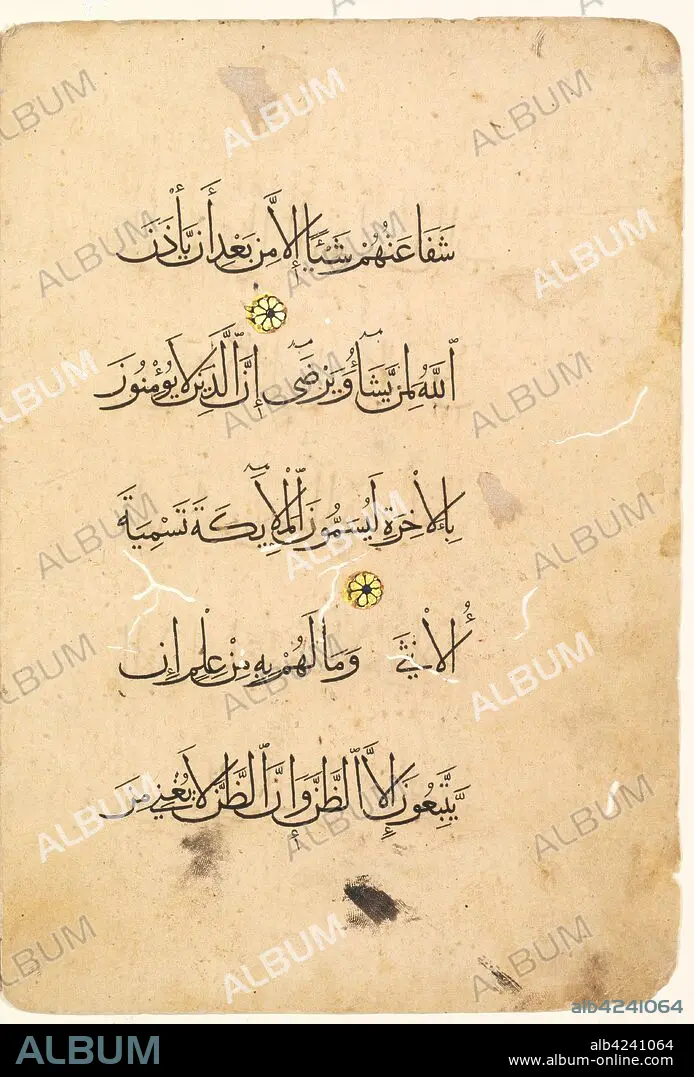 شَفَاعَتُهُمْ شَيْئًا إِلَّا مِنْ بَعْدِ أَنْ يَأْذَنَ
ٱللَّهُ لِمَنْ يَّشَآءُ وَيَرْضَىٰٓ إِنَّ ٱلَّذِينَ لَا يُؤْمِنُونَ
بِالْأَخِرَةِ لَيُسَمُّونَ ٱلْمَلَآئِكَةَ تَسْمِيَةَ
ٱلْأُنْثَىٰ وَمَا لَهُمْ بِهِ مِنْ عِلْمٍ إِنْ
يَّتَّبِعُونَ إِلَّا ٱلظَّنَّ وَإِنَّ ٱلظَّنَّ لَا يُغْنِي مِنَ
ALBUM
alb4241064
ALBUM
alb4241064
www.album-online.com